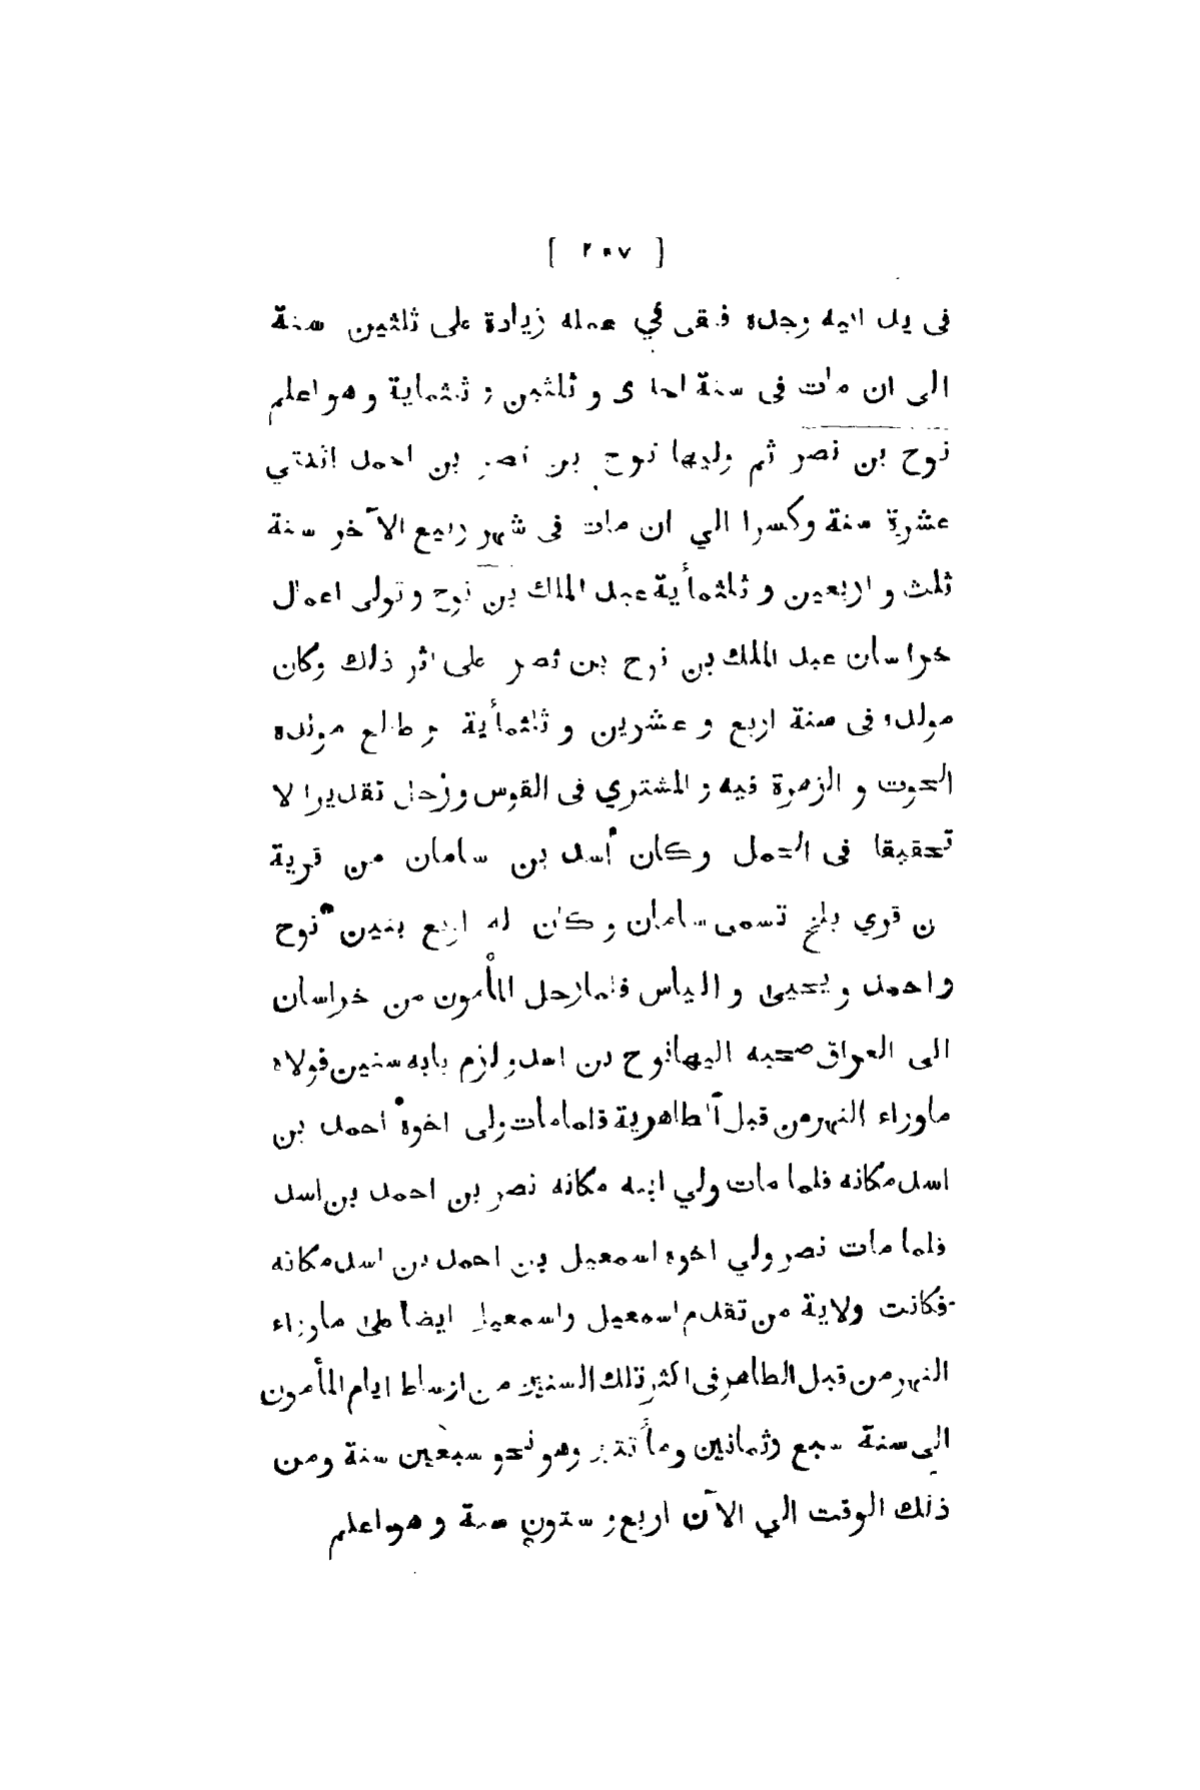 [ ٢٠٧ ]
فى يد ابيه وجده فبقى في عمله زيادة على ثلثين سنة
الى ان مات فى سنة احدى و ثلثين و ثلثماية و هو اعلم
نوح بن نصر ثم وليها نوح بن نصر بن احمد اثنتي
عشرة سنة وكسرا الي ان مات فى شهر ربيع الآخر سنة
ثلث و اربعين و ثلثمأية عبد الملك بن نوح و تولى اعمال
خراسان عبد الملك بن نوح بن نصر على اثر ذلك وكان
مولده فى سنة اربع و عشرين و ثلثمأية و طالع مولده
الحوت و الزهرة فيه و المشتري فى القوس و زحل تقديرا لا
تحقيقا فى الحمل وكان أسد بن سامان من قرية
ن قري بلخ تسمى سامان و كان له اربع بنين نوح
و احمد و يحيى و الياس فلما رحل المأمون من خراسان
الى العراق صحبه اليها نوح بن اسد و لزم بابه سنين فولاه
ماوراء النهر من قبل الطاهرية فلما مات ولى اخوه احمد بن
اسد مكانه فلما مات ولي ابنه مكانه نصر بن احمد بن اسد
فلما مات نصر ولي اخوه اسمعيل بن احمد بن اسد مكانه
فكانت ولاية من تقدم اسمعيل و اسمعيل ايضا على ماوراء
النهر من قبل الطاهر فى اكثر تلك السنين من اوساط ايام المأمون
الى سنة سبع وثمانين ومأتين وهو نحو سبعين سنة ومن
ذلك الوقت الي الآن اربع و ستون سنة و هو اعلم